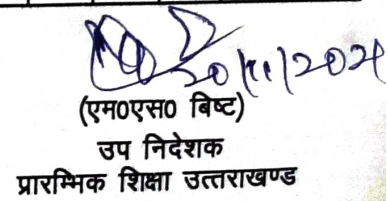 20/11/202
(एम0एस0 बिष्ट)
उप निदेशक
प्रारम्भिक शिक्षा उत्तराखण्ड